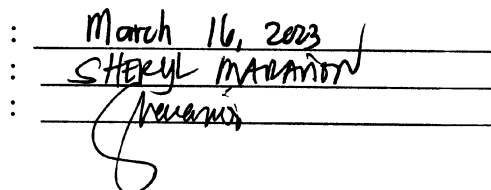 : March 16, 2023
: SHERYL MARAÑON
: